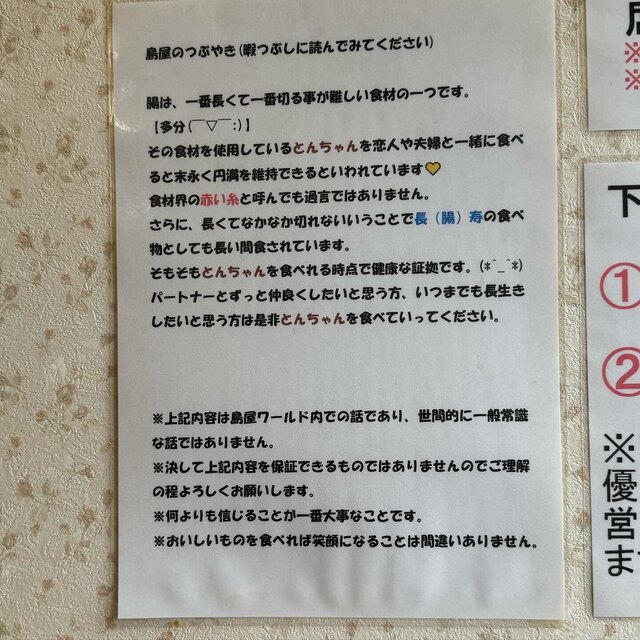 島屋のつぶやき(暇つぶしに読んでみてください)
腸は、一番長くて一番切る事が難しい食材の一つです。
【多分(￣▽￣;)】
その食材を使用しているとんちゃんを恋人や夫婦と一緒に食べ
ると末永く円満を維持できるといわれています💛
食材界の赤い糸と呼んでも過言ではありません。
さらに、長くてなかなか切れないいうことで長（腸）寿の食べ
物としても長い間食されています。
そもそもとんちゃんを食べれる時点で健康な証拠です。(*^_^*)
パートナーとずっと仲良くしたいと思う方、いつまでも長生き
したいと思う方は是非とんちゃんを食べていってください。
※上記内容は島屋ワールド内での話であり、世間的に一般常識
な話ではありません。
※決して上記内容を保証できるものではありませんのでご理解
の程よろしくお願いします。
※何よりも信じることが一番大事なことです。
※おいしいものを食べれば笑顔になることは間違いありません。
※
※
下
①
②
※
優
営
ま